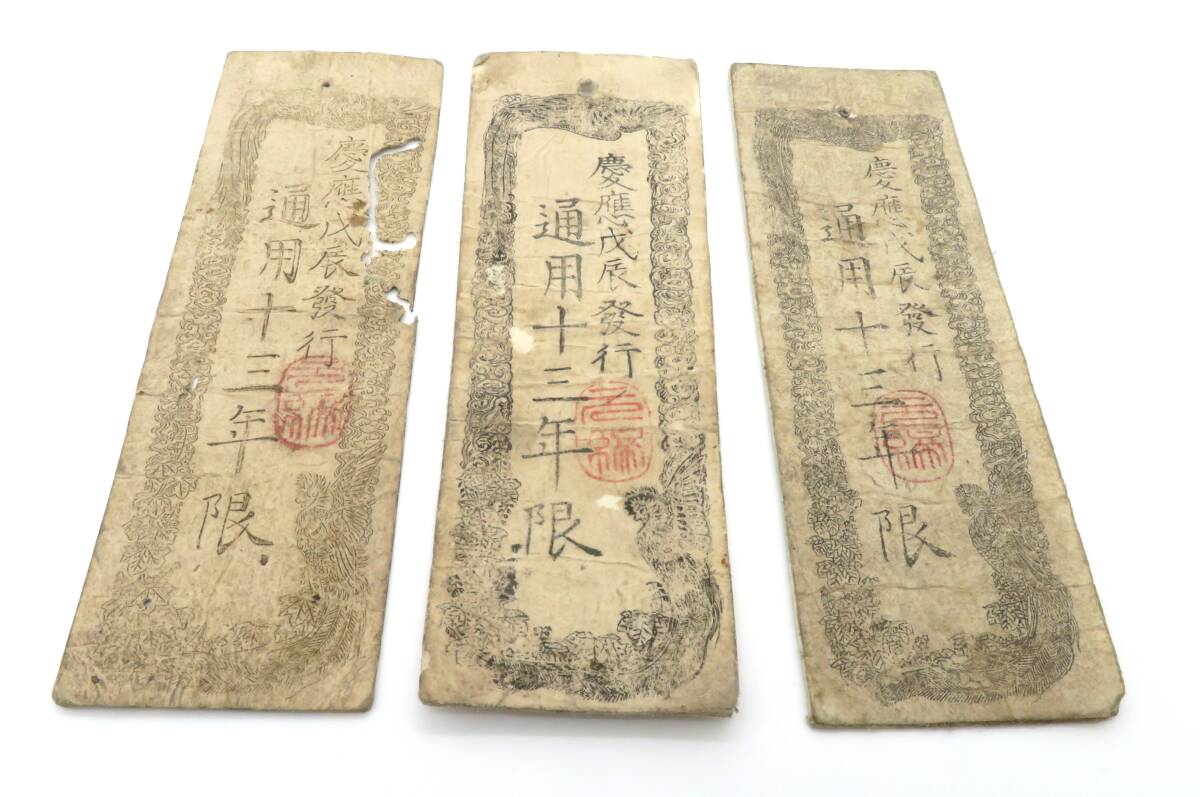 慶應戊辰發行
通用十三年限
慶應戊辰發行
通用十三年限
慶應戊辰發行
通用十三年限